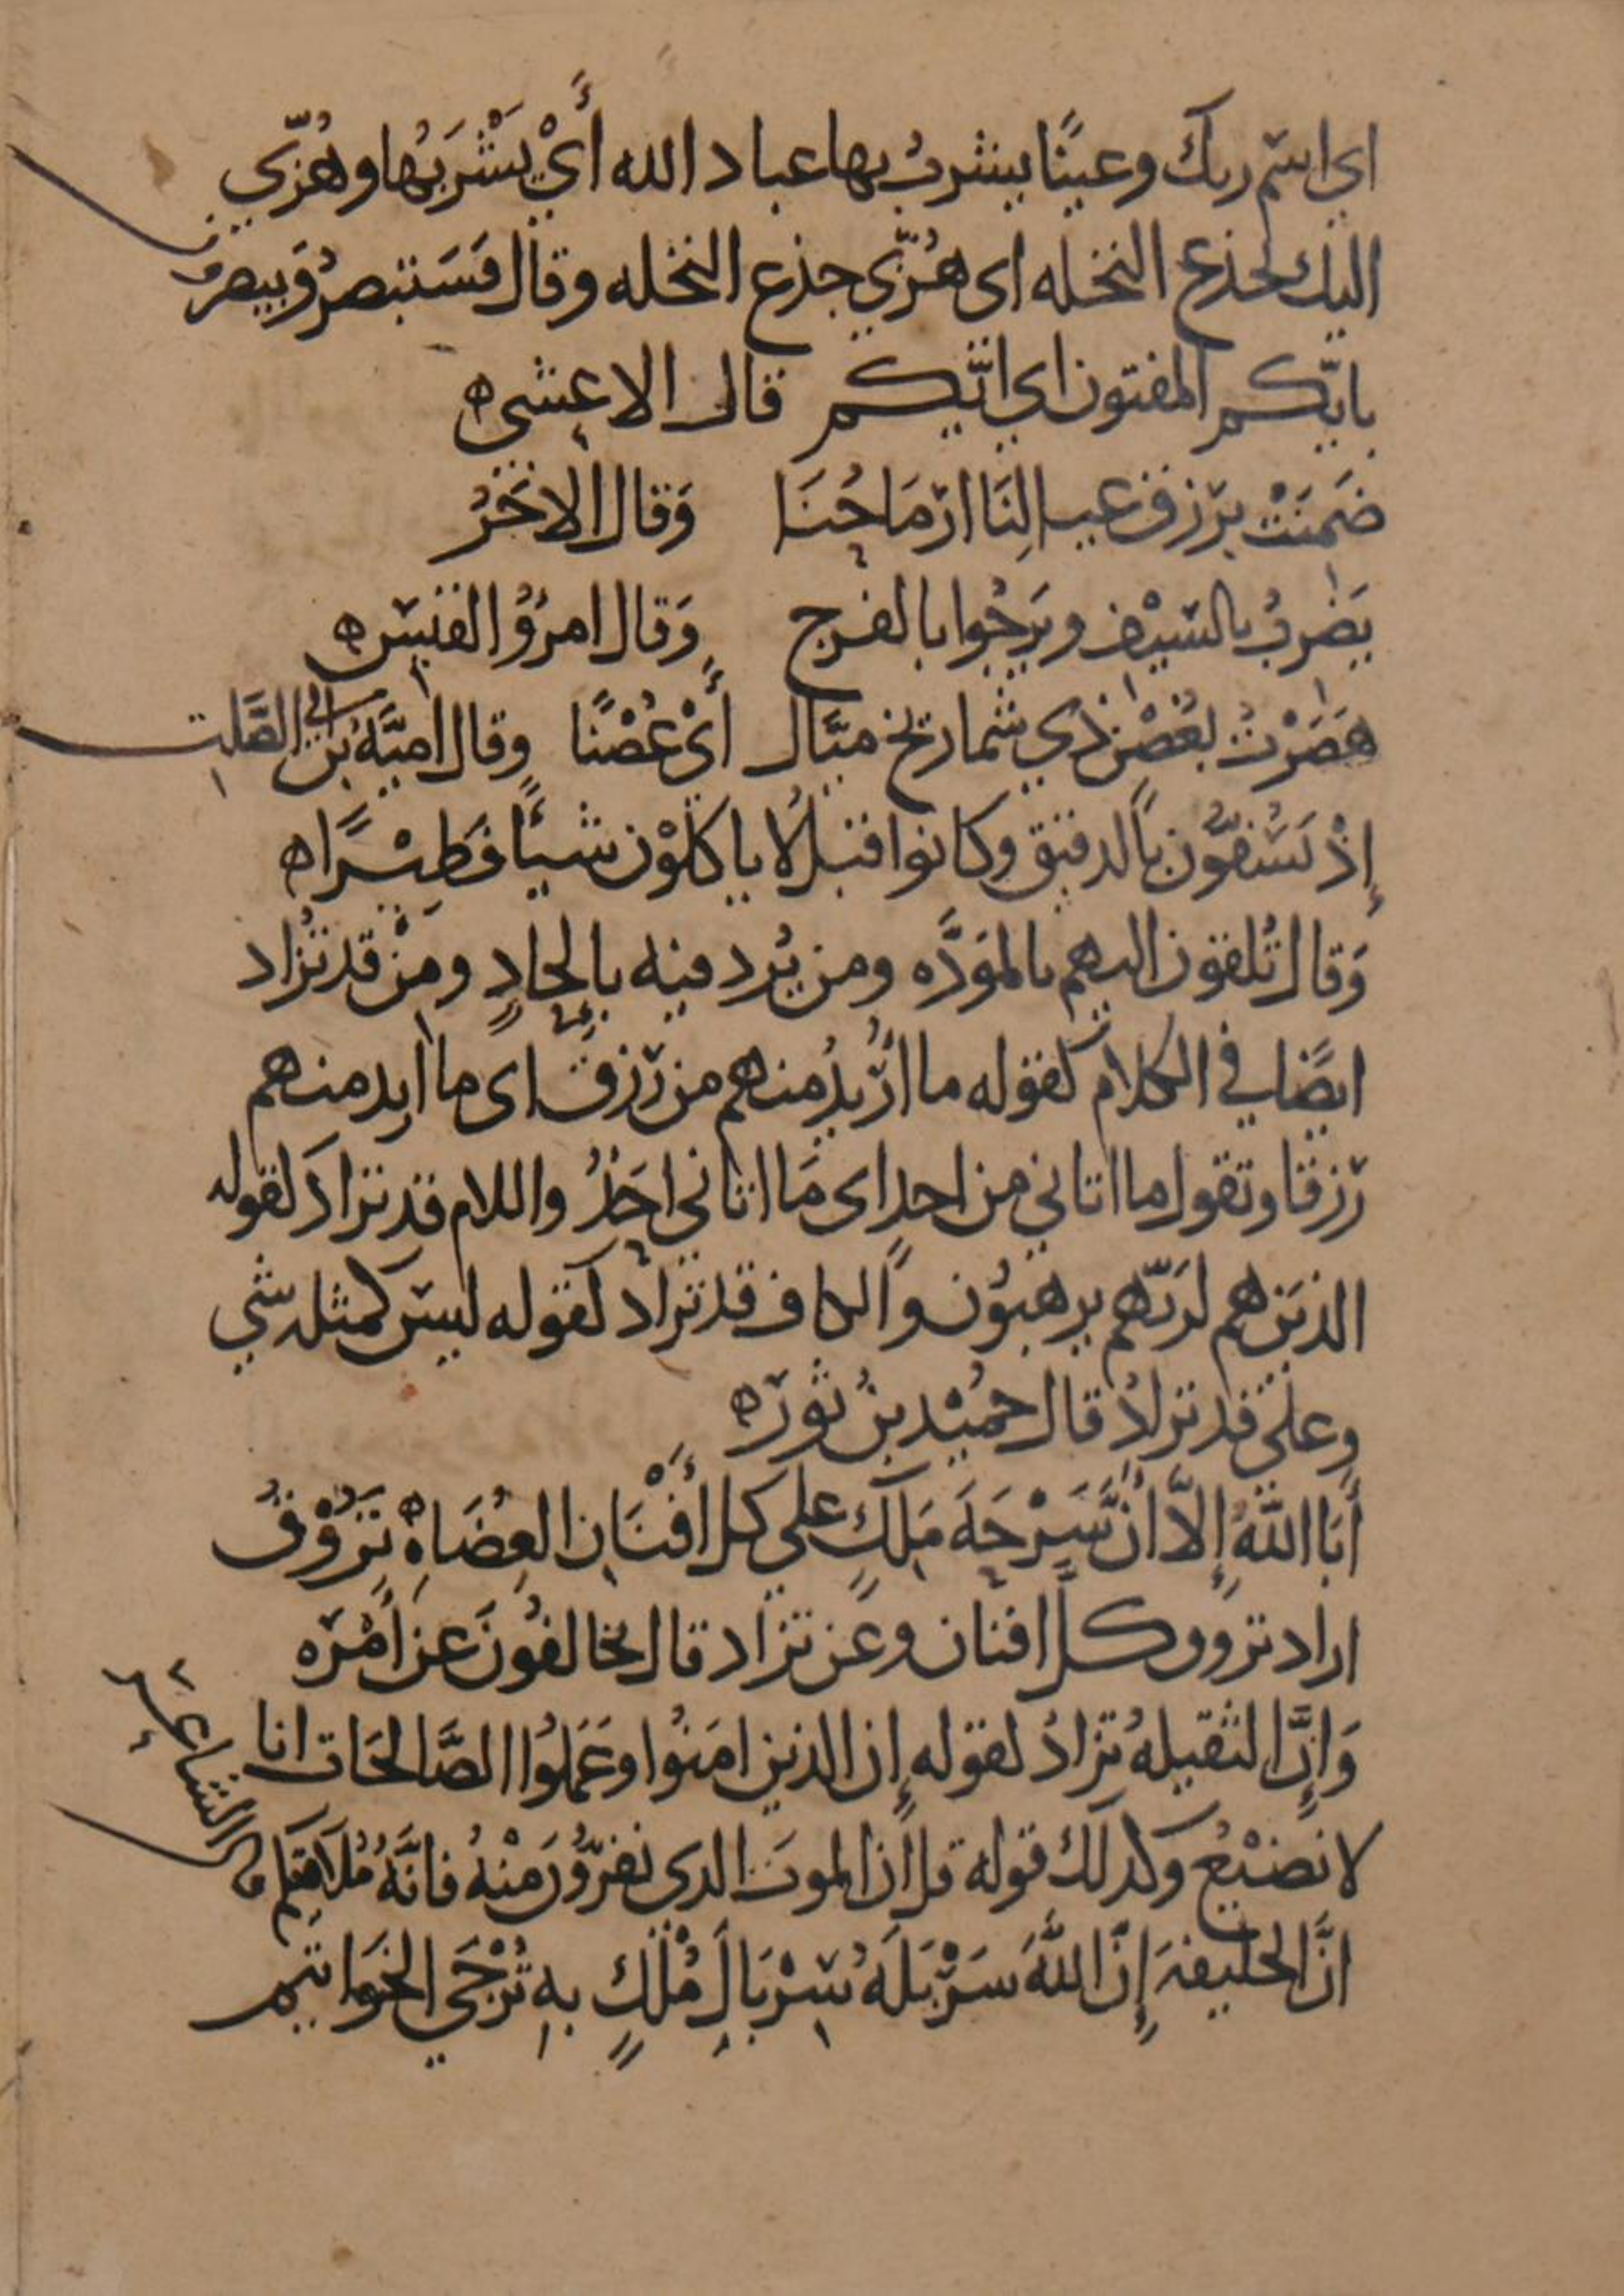 اي اسم ربك وعينًا يشربُ بها عباد الله أَيْ يَشْرَبُها وهُزّي
اليك بجذع النخله اى هُزّي جذع النخله وقال فسَتبصرُ وَيبصرون
بايّكم المفتون اي ايّكم قال الاعشى ه
ضَمِنَتْ برزق عيالِنَا ارْمَاحُنَا وَقال الاخَرُ
يَضْربُ بالسّيْف ويَرجُوا بالفرج وَقال امرُؤُ القيس ه
هَصَرْتُ بغُصْن ذي شماريخ ميّال أَيْ غُصْنًا وقال اميَّهُ بن ابى الصَّلت
إِذْ يَسُفّوُن بالدقيق وكانوا قبلُ لا ياكلوْن شيئًا فَطِيْرًا ه
وَقال تُلقون اليهم بالموَدَّه ومن يُرد فيه بإِلحادٍ ومِنْ قد تُزاد
ايضًا في الكلام كقوله ما أُرْيدُ منهم من رّزق اى ما اريد منهم
رّزقا وتقول ما اتاني من احدٍ اى مَا اتاني احَدٌ واللام قد تزادَ لقوله
الذين هم لرَبّهم يرهبوُن والكاف قد تزاد كقوله ليس كمثله شي
وعلى قد تزادُ قال حميْد بنُ ثور ه
أَبَا اللَّهُ إِلاَّ أَنَّ سَرْحَةَ مَلكٍ على كل أَفْنَانِ العِضَاهِ تَرُوْقُ
اراد تروق كلَّ افنان وعن تزاد قال يخالفُونَ عن أَمْره
وَإِنَّ الثقيلهُ تزادُ لقوله إِن الذين امَنُوا وعَمِلُوا الصَّالحَات انا
لا نضيْعُ وكذلك قوله قل اِن الموتَ الذى تفرّوُنَ مِنْهُ فانَّهُ مُلاَقيكم قال الشاعر
انَّ الخليفةَ إِنَّ اللَّهَ سَرْبَلَهُ سِرْبَالَ مُلْكٍ بهِ تُرْجَى الخَوَاتيم